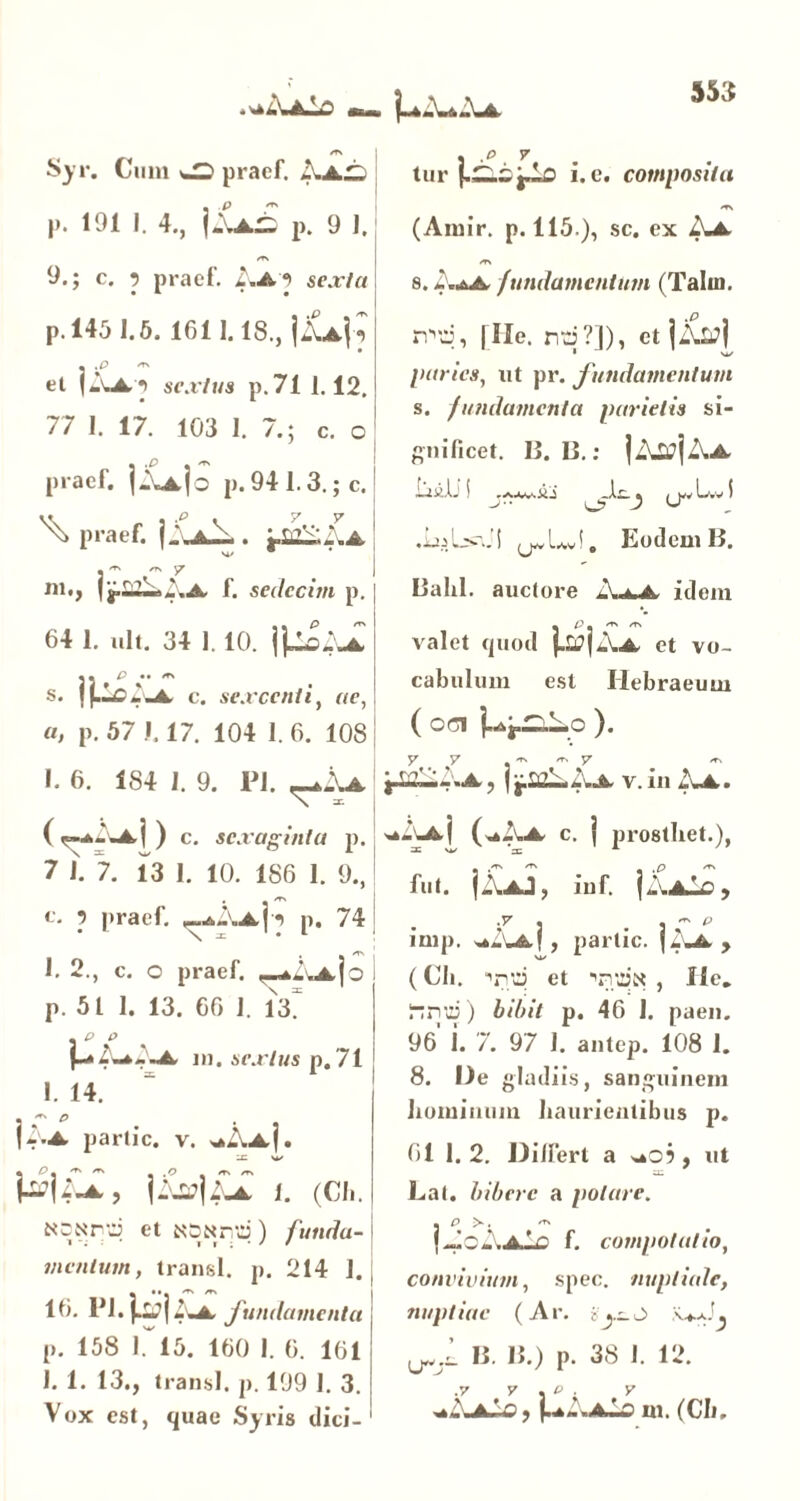 ܡܫܬܝ. — ܫܬܝܬܝܐ 553
Syr. Cum ܒ praef. ܒܫܬ
p. 191 l. 4., ܒܫܬܐ p. 9 l.
9.; c. ܕ praef. ܕܫܬ sexta
p.145 l.5. 161 l.18., ܕܐܫܬܐ
et ܕܫܬܐ sextus p.71 l.12.
77 l. 17. 103 l. 7.; c. ܘ
praef. ܘܐܫܬܐ p.94 l.3.; c.
ܠ praef. ܠܫܬܐ. ܫܬܥܣܪ
m., ܫܬܥܣܪܐ f. sedecim p.
64 l. ult. 34 l.10. ܫܬܡܐܐ
s. ܫܬܡܐܐ c. sexcenti, ae,
a, p. 57 l.17. 104 l.6. 108
l. 6. 184 l. 9. Pl. ܫܬܝܢ
(ܐܫܬܝܢ) c. sexaginta p.
7 l. 7. 13 l. 10. 186 l. 9.,
c. ܕ praef. ܕܐܫܬܝܢ p. 74
l. 2., c. ܘ praef. ܘܐܫܬܝܢ
p. 51 l. 13. 66 l. 13.
ܫܬܝܬܝܐ m. sextus p.71
l. 14.
ܫܬܐ partic. v. ܐܫܬܝ.
ܫܬܐܣܐ, ܫܬܐܣܬܐ f. (Ch.
שתאסא et שתאסא) funda-
mentum, transl. p. 214 l.
16. Pl. ܫܬܐܣܐ fundamenta
p. 158 l. 15. 160 l. 6. 161
l. 1. 13., transl. p. 199 l. 3.
Vox est, quae Syris dici-
tur ܡܪܟܒܐ i.e. composita
(Amir. p.115.), sc. ex ܫܬ
s. ܫܝܬ fundamentum (Talm.
שית, [He. שת?]), et ܐܣܬܐ
paries, ut pr. fundamentum
s. fundamenta parietis si-
gnificet. B. B.: ܫܬܐܣܬܐ
اساس
اساس الحايط. Eodem B.
Bahl. auctore ܫܝܬ idem
valet quod ܫܬܐܣܐ et vo-
cabulum est Hebraeum
(ܘܥܒܪܝܐ ܗܘ).
ܫܬܥܣܪ, ܫܬܥܣܪܐ v. in ܫܬ.
ܐܫܬܝ (ܫܬܝ c. ܐ prosthet.),
fut. ܢܫܬܐ, inf. ܡܫܬܐ,
imp. ܐܫܬܝ, partic. ܫܬܐ,
(Ch. שתי et אשתי, He.
שתה) bibit p. 46 l. paen.
96 l. 7. 97 l. antep. 108 l.
8. De gladiis, sanguinem
hominum haurientibus p.
61 l. 2. Differt a ܪܘܝ, ut
Lat. bibere a potare.
ܡܫܬܘܬܐ f. compotatio,
convivium, spec. nuptiale,
nuptiae (Ar. وليمة دعوة
عرس B. B.) p. 38 l. 12.
ܡܫܬܝ, ܡܫܬܝܐ m. (Ch.